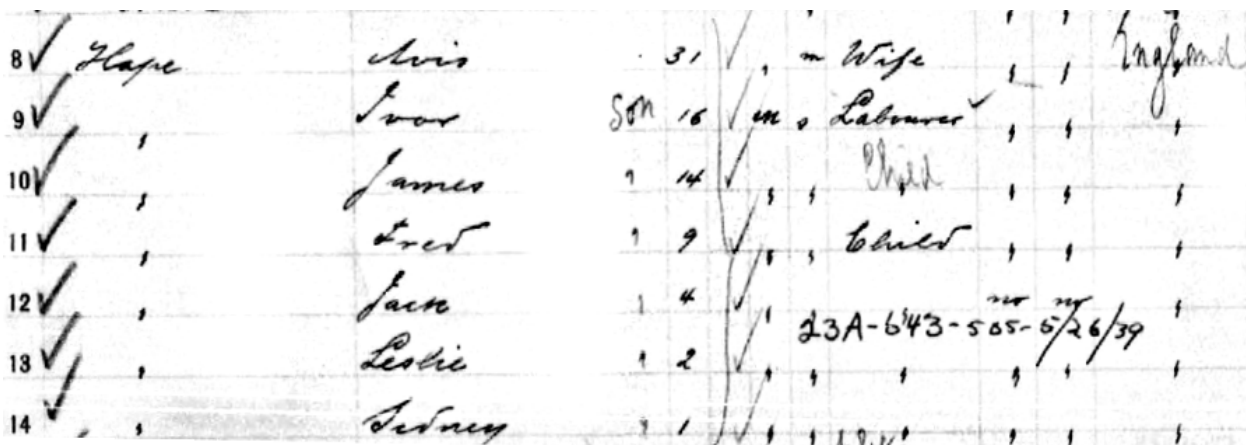 8 Hope Avis 31 " m Wife " " England
9 " Ivor Son 16 m s Labourer " " "
10 " James " 14 " " Child " " "
11 " Fred " 9 " " Child " " "
12 " Jack " 4 " "
no no
23A-643-505-5/26/39
13 " Leslie " 2 " " " " " "
14 " Sidney " 1 " " " " "